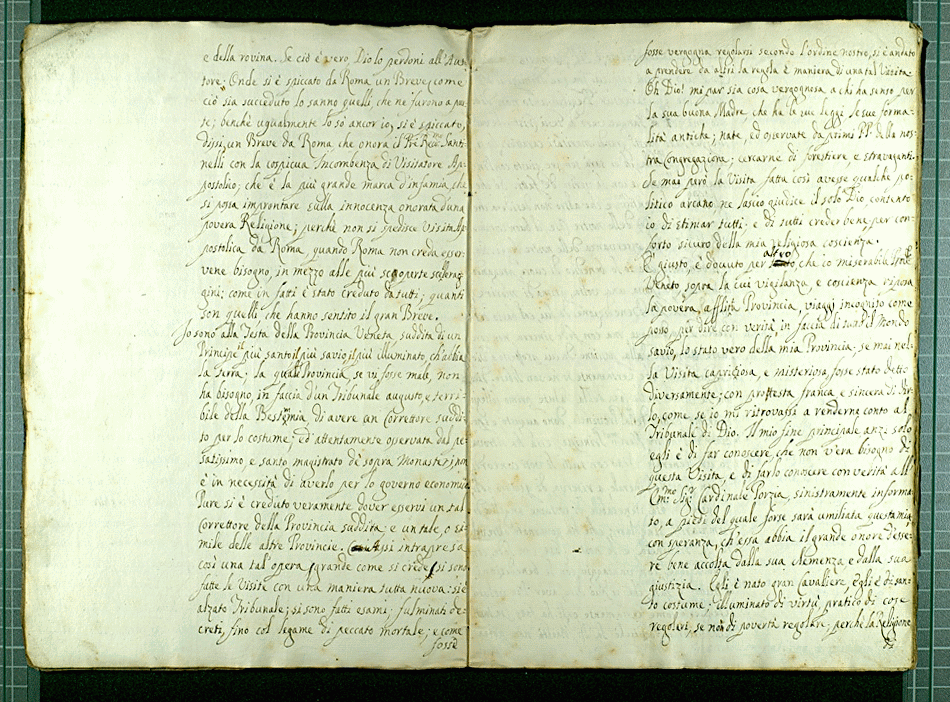 e della rovina. Se ciò è vero, Dio lo perdoni all'Aut
tore; Onde si è spiccato da Roma un Breve, come
ciò sia succeduto lo sanno quelli che ne furono a par
te; benchè ugualmente lo sò ancor io, si è spiccato,
dissi, un Breve da Roma che onora il Pre Revmo Santi
nelli con la cospicua Incombenza di Visitatore Ap
postolico; che è la più grande marca d'infamia, che
si possa improntare sulla innocenza onorata d'una
povera Religione; perchè non si spedisce Visita Ap
postolica da Roma, quando Roma non creda esser
vene bisogno, in mezzo alle più scoperte scelerag
gini; come in fatti è stato creduto da tutti, quanti
son quelli che hanno sentito il gran Breve.
Io sono alla Testa della Provincia Veneta suddita di un
Principe il più santo il più savio, il più illuminato, ch'abbia
la Terra; la quale Provincia, se vi fosse male, non
ha bisogno, in faccia d'un Tribunale augusto, e terri
bile della Bestemia di avere un Correttore suddi
to per lo costume; ed attentamente osservata dal pe
satissimo, e santo magistrato de sopra Monasterj, non
è in necessità di averlo per lo governo economico
Pure si è creduto veramente dover esservi un tal
Correttore della Provincia suddita; e un tale, o si
mile delle altre Provincie. intrapresa
così una tal'opera, grande come si crede, si sono
fatte le Visite con una maniera tutta nuova: si è
alzato Tribunale; si sono fatti esami; fulminati de
creti, fino col legame di peccato mortale; e come
fosse
fosse vergogna regolarsi secondo l'ordine nostro, si è andato
a prendere da altri la regola è maniera di una tal Visita.
Oh Dio! mi par sia cosa vergognosa a chi ha senso per
la sua buona Madre che ha le sue leggi, le sue forma
lità antiche; nate, ed osservate da primi PP. della nos
tra Congregazione; cercarne di forestiere, e stravaganti.
Se mai però la Visita fatta così avesse qualche po
litico arcano, ne lascio giudice il solo Dio, contento
io di stimar tutti; e di tutti creder bene, per con
forto sicuro della mia religiosa coscienza.
E' giusto, è dovuto per altro, che io miserabile
Veneto, sopra la cui vigilanza, e coscienza riposa
la povera, afflitta Provincia, viaggi incognito come
posso, per dire con verità in faccia di tutto il Mondo
savio, lo stato vero della mia Provincia; se mai nel
la Visita capriciosa, e misteriosa, fosse stato detto
diversamente; con protesta franca, e sincera di dir
lo, come se io mi ritrovassi a renderne conto al
Tribunale di Dio. Il mio fine principale anzi solo
egli è di far conoscere, che non v'era bisogno di
questa Visita, e di farlo conoscere con verità all'
Emo Sigr Cardinale Porzia, sinistramente informa
to, a piedi del quale forse sarà umiliata questa mia
con speranza, ch'essa abbia il grande onore d'esse
re bene accolta dalla sua clemenza, e dalla sua
giustizia. Egli è nato gran Cavaliere, Egli è di san
to costume; illuminato di virtù, pratico di cose
regolari, se non di povertà regolare; perchè la Religione